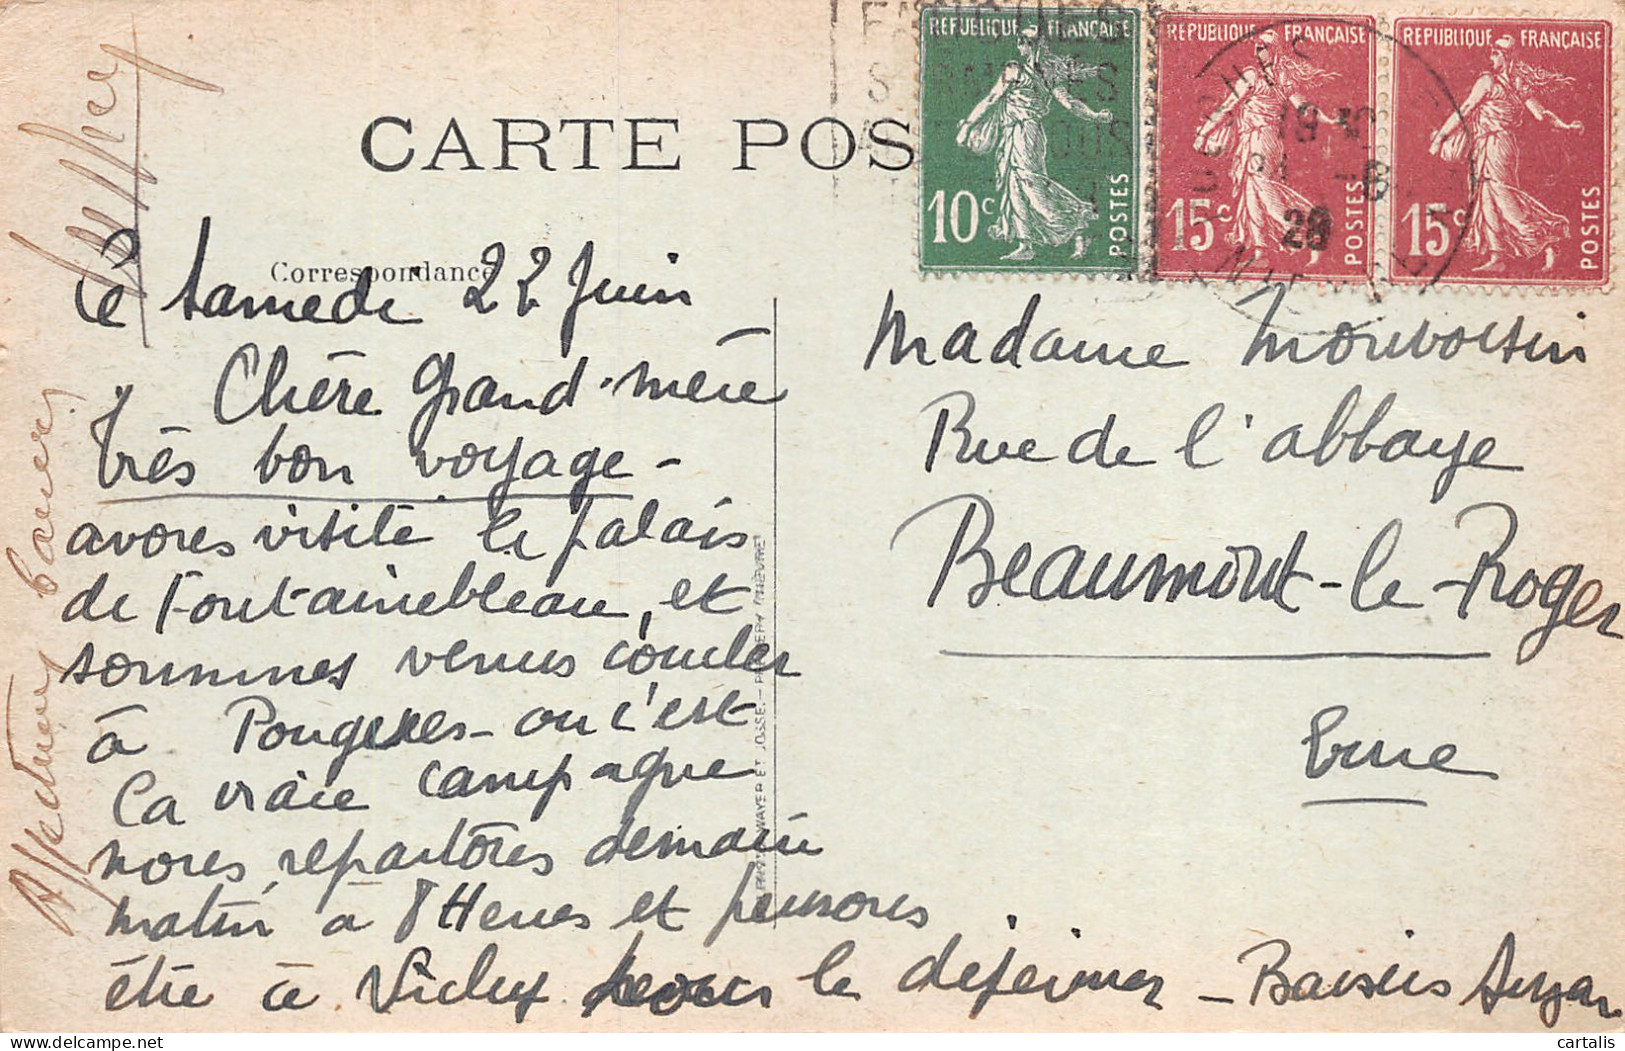 REPUBLIQUE FRANÇAISE
10c POSTES
REPUBLIQUE FRANÇAISE
15c POSTES
REPUBLIQUE FRANÇAISE
15c POSTES
CARTE POS
Correspondance
Samedi 22 Juin
Chère Grand-mère
Très bon voyage -
avons visité le palais
de Fontainebleau, et
sommes venus coucher
à Pougues - ou c'est
la vraie campagne
nous repartons demain
matin à 8 Heures et pensons
être à Vichy pour le déjeuner - Baisers
Madame Monvoisin
Rue de l'abbaye
Beaumont-le-Roger
Eure
Affectueux baisers
cartalis
delcampe.net